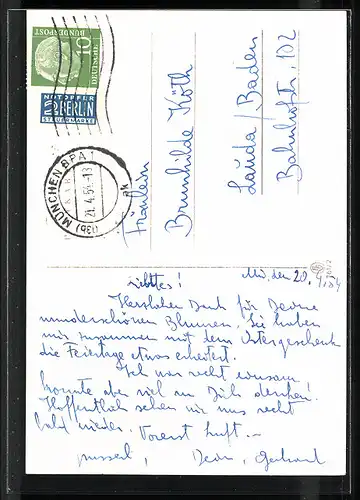 DEUTSCHE BUNDESPOST
10
NOTOPFER
2 BERLIN
STEUERMARKE
(13b) MÜNCHEN BPA 1
21.4.54-13
Fräulein
Brunhilde Köth
Lauda / Baden
Bahnhofstr. 102
Mü, den 20.4.54
Herzlichen Dank für Deine
wunderschönen Blumen. Sie haben
mir zusammen mit dem Ostergeschenk
die Feiertage etwas erheitert.
Ich war recht einsam
konnte aber viel an Dich denken!
Hoffentlich sehen wir uns recht
bald wieder. Vorerst
Dein, Gerhard